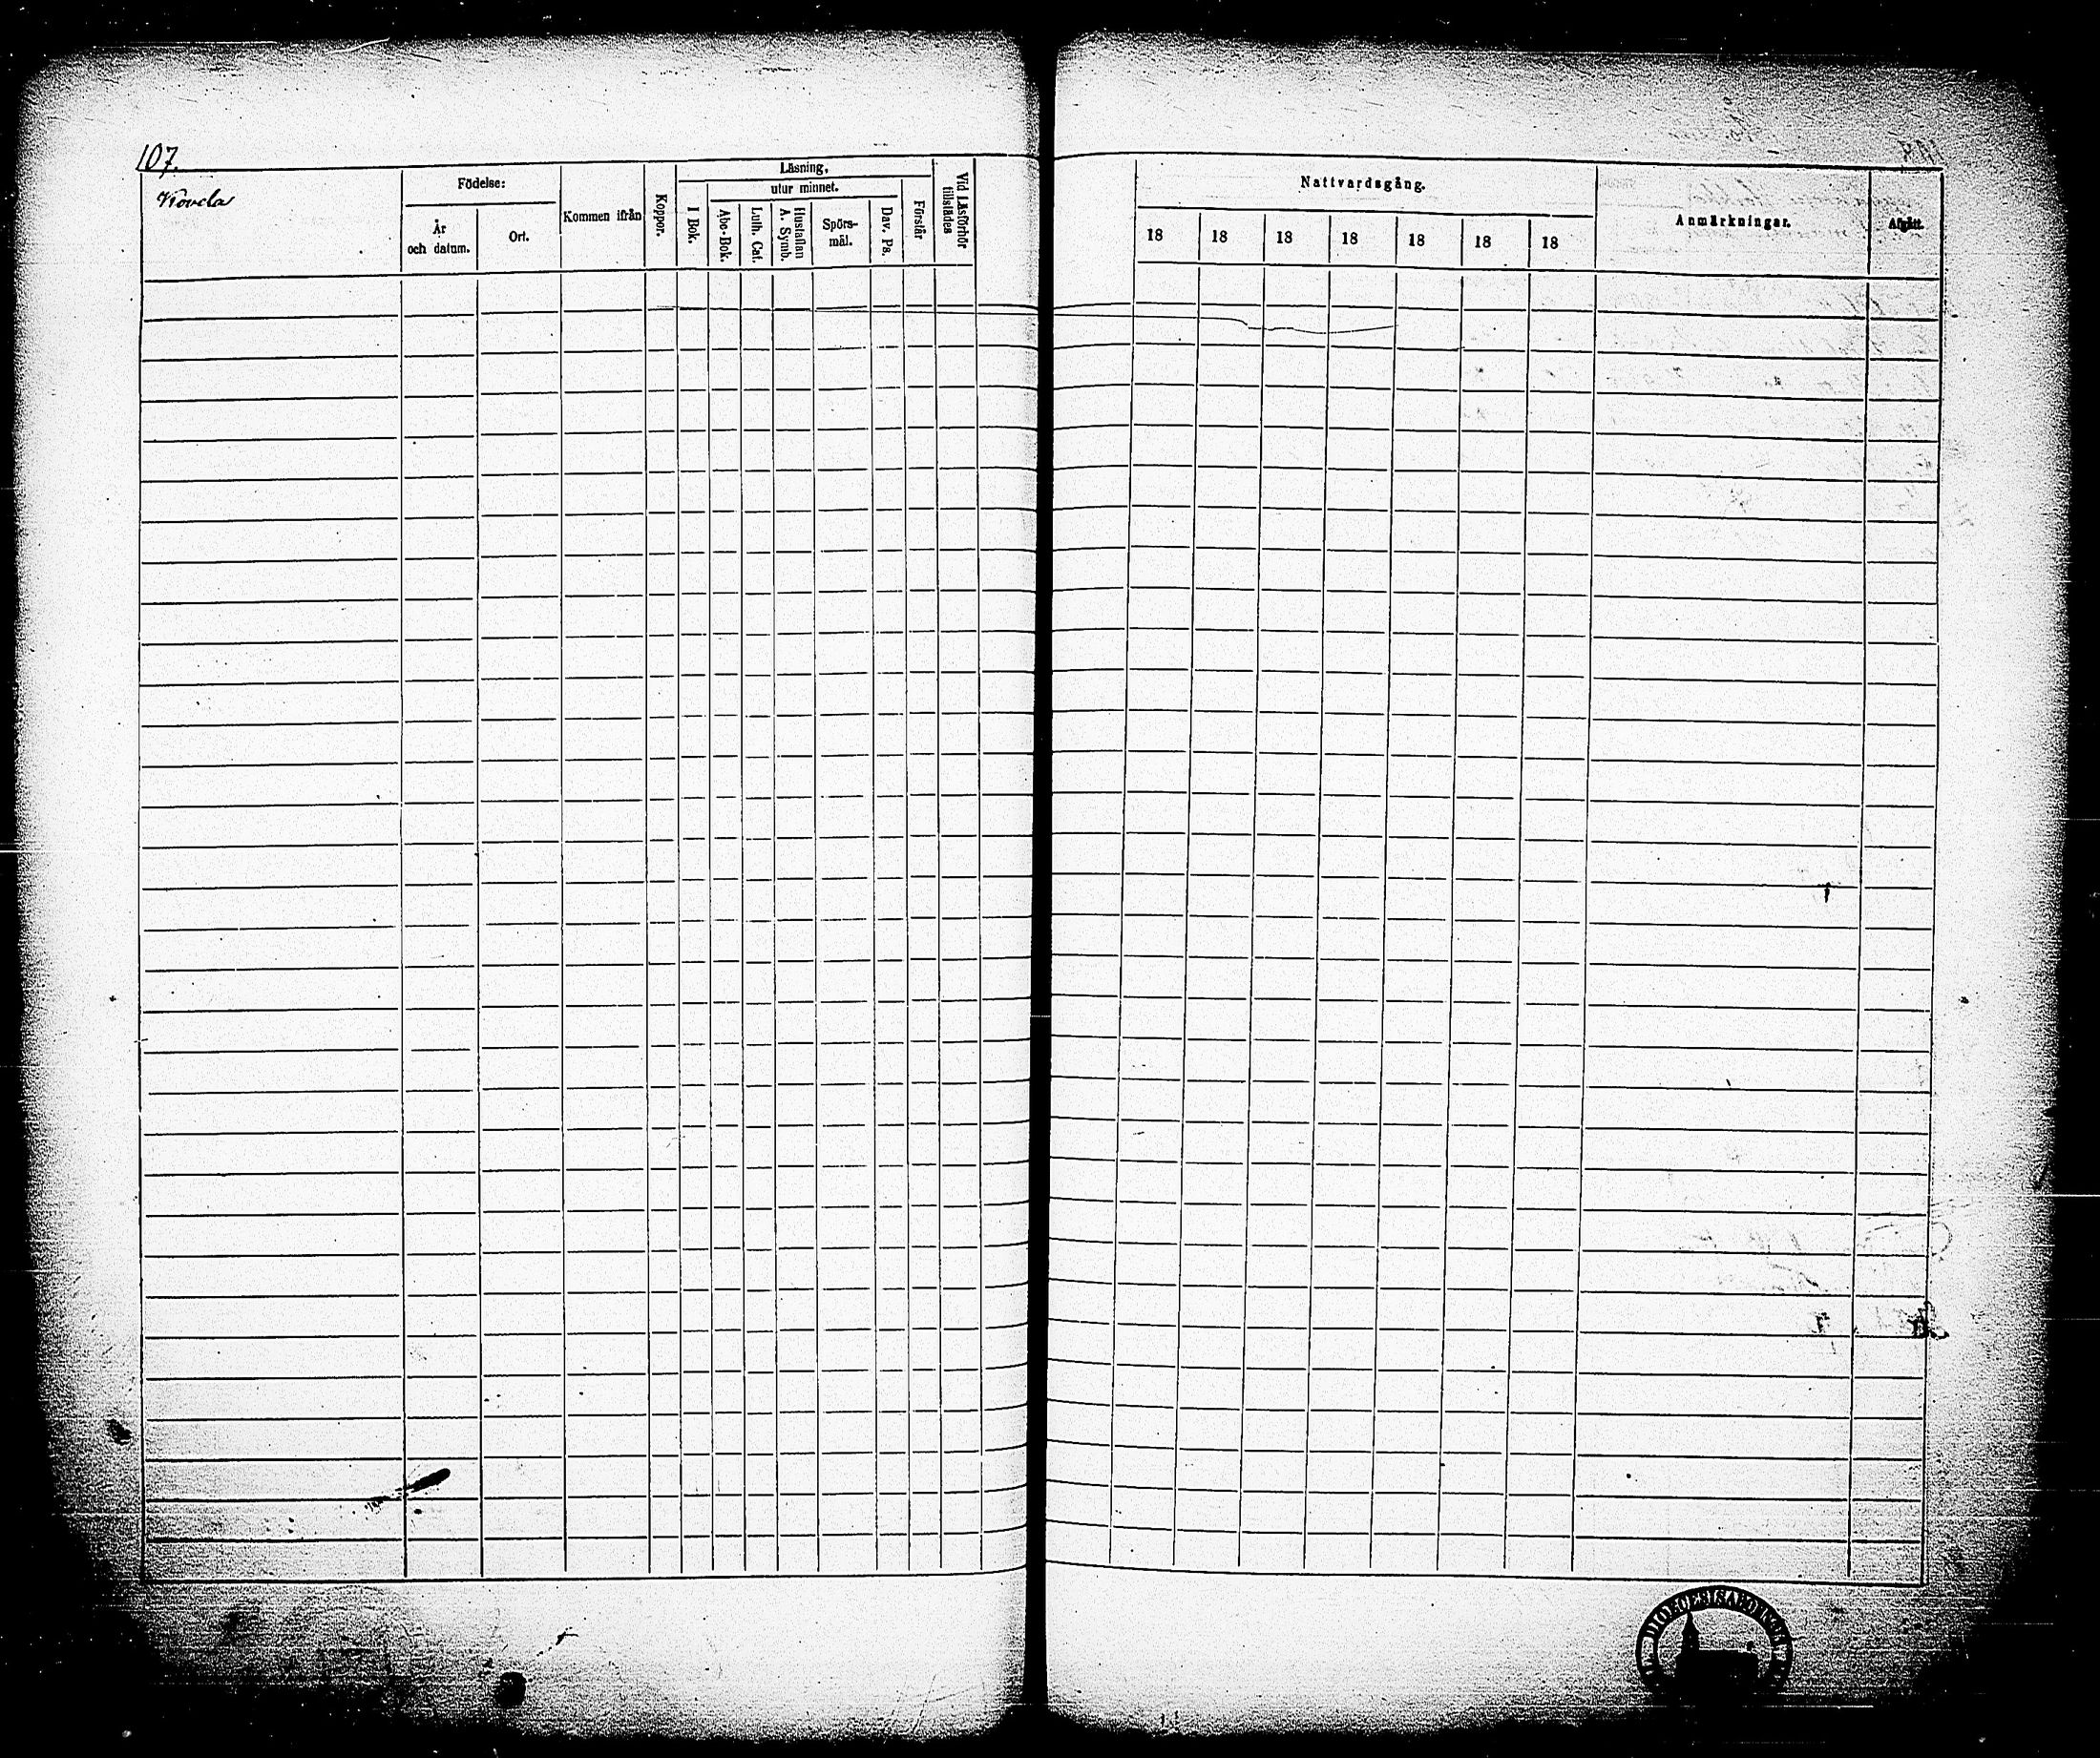 107.
Födelse:
Kommen ifrån
Koppor.
Läsning,
utur minnet.
Vid Läsförhör tillstädes
År
och datum.
Ort.
I Bok.
Abc-Bok.
Luth. Cat.
Hustaflan
A. Symb.
Spörs-
mål.
Dav. Ps.
Förstår
Nattvardsgång.
18 18 18 18 18 18 18
Anmärkningar.
Afgått.